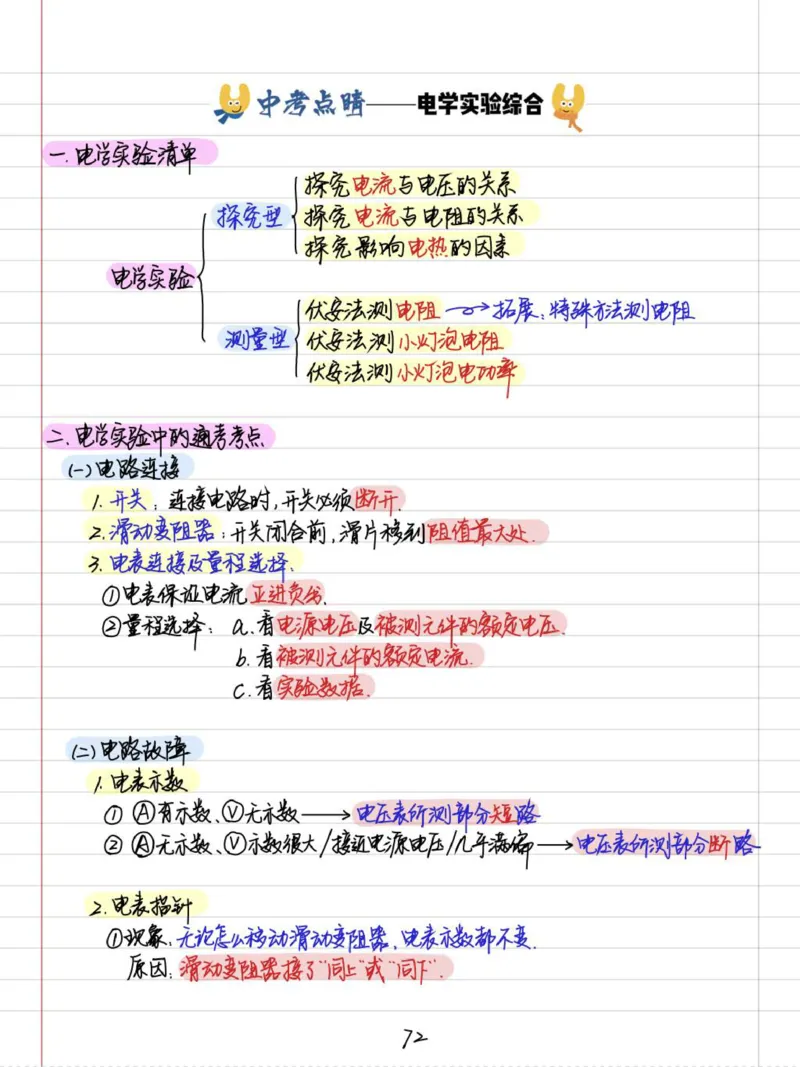 中考点睛——电学实验综合
一.电学实验清单
电学实验
探究型
探究电流与电压的关系
探究电流与电阻的关系
探究影响电热的因素
测量型
伏安法测电阻→拓展:特殊方法测电阻
伏安法测小灯泡电阻
伏安法测小灯泡电功率
二.电学实验中的通考考点
(一)电路连接
1.开关:连接电路时,开关必须断开.
2.滑动变阻器:开关闭合前,滑片移到阻值最大处.
3.电表连接及量程选择.
①电表保证电流正进负出.
②量程选择: a.看电源电压及被测元件的额定电压.
b.看被测元件的额定电流.
c.看实验数据.
(二)电路故障
1.电表示数
① Ⓐ有示数、Ⓥ无示数→电压表所测部分短路
② Ⓐ无示数、Ⓥ示数很大/接近电源电压/几乎满偏→电压表所测部分断路
2.电表指针
①现象:无论怎么移动滑动变阻器,电表示数都不变.
原因:滑动变阻器接了“同上”或“同下”.
72